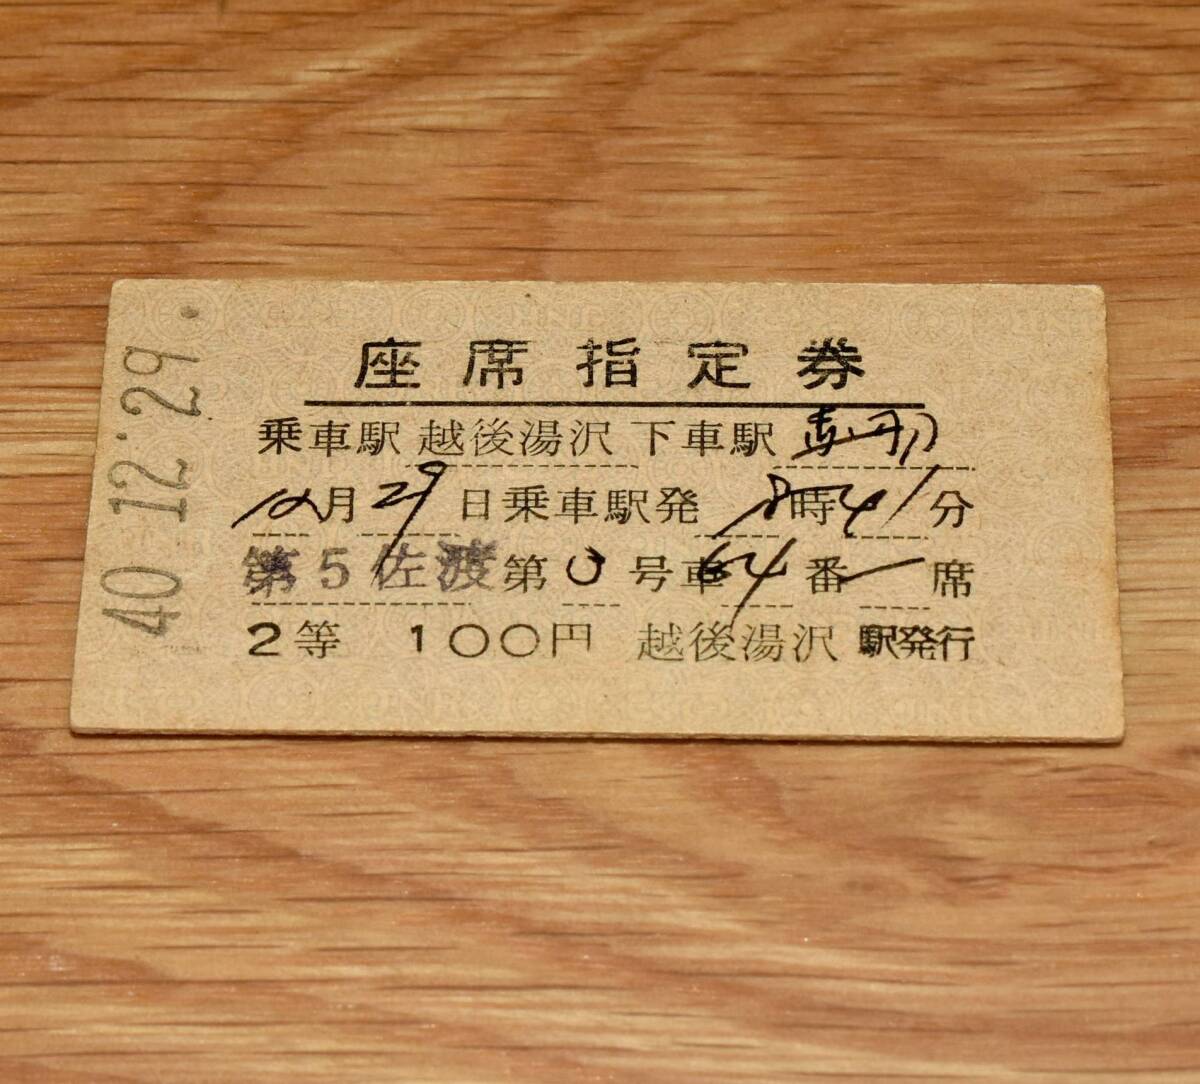 40.12.29.
座席指定券
乗車駅 越後湯沢 下車駅
12月29日乗車駅発 18時41分
第5佐渡 第 号車 64番 席
2等 100円 越後湯沢 駅発行